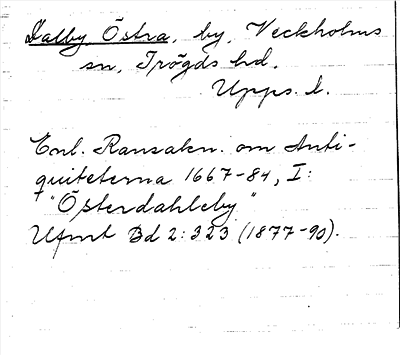 Dalby, Östra, by, Veckholms
sn, Trögds hd.
Upps. l.
Enl. Ransakn. om Anti-
quiteterna 1667-84, I:
"Österdahleby"
Ufmt Bd 2:323 (1877-90).